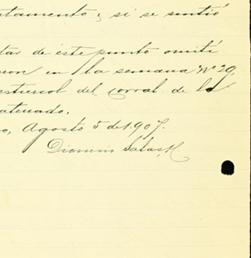 tamento; si se sintió
tar de este punto omití
son en la semana Nº 29,
estiercol del corral de la
o, Agosto 5 de 1907.
Dionisio Salas